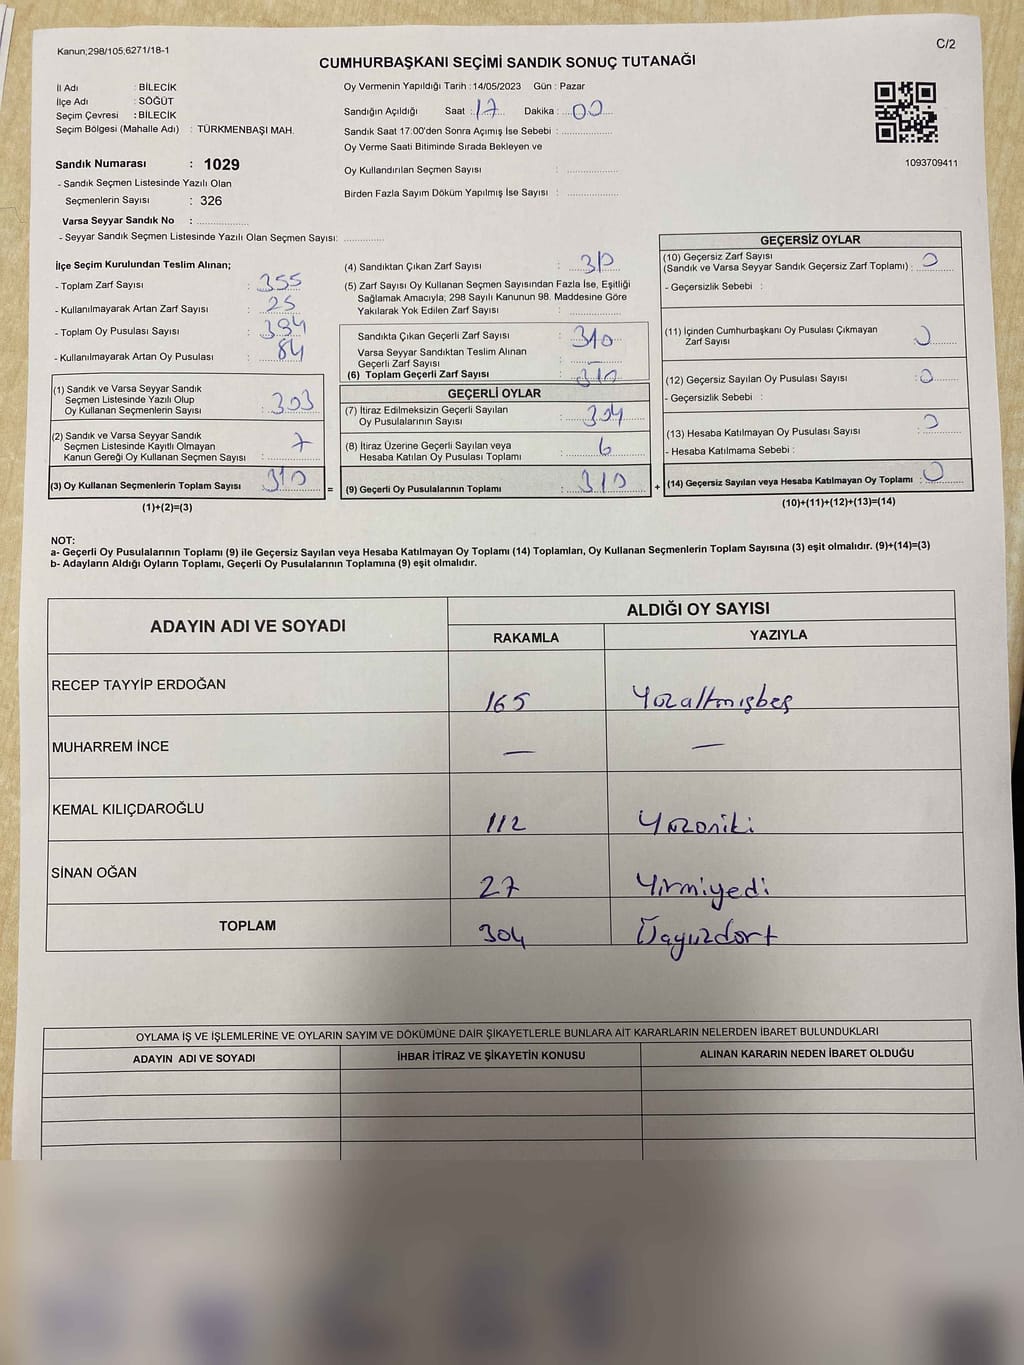 Kanun;298/105,6271/18-1
C/2
CUMHURBAŞKANI SEÇİMİ SANDIK SONUÇ TUTANAĞI
İl Adı : BİLECİK
İlçe Adı : SÖĞÜT
Seçim Çevresi : BİLECİK
Seçim Bölgesi (Mahalle Adı) : TÜRKMENBAŞI MAH.
Sandık Numarası : 1029
- Sandık Seçmen Listesinde Yazılı Olan
Seçmenlerin Sayısı : 326
Varsa Seyyar Sandık No : ..............
- Seyyar Sandık Seçmen Listesinde Yazılı Olan Seçmen Sayısı: ............
Oy Vermenin Yapıldığı Tarih : 14/05/2023 Gün : Pazar
Sandığın Açıldığı Saat : 17 Dakika : 00
Sandık Saat 17:00'den Sonra Açımış İse Sebebi : ..............
Oy Verme Saati Bitiminde Sırada Bekleyen ve
Oy Kullandırılan Seçmen Sayısı : ..............
Birden Fazla Sayım Döküm Yapılmış İse Sayısı : ..............
1093709411
İlçe Seçim Kurulundan Teslim Alınan;
- Toplam Zarf Sayısı : 355
- Kullanılmayarak Artan Zarf Sayısı : 25
- Toplam Oy Pusulası Sayısı : 394
- Kullanılmayarak Artan Oy Pusulası : 84
(1) Sandık ve Varsa Seyyar Sandık
Seçmen Listesinde Yazılı Olup
Oy Kullanan Seçmenlerin Sayısı : 303
(2) Sandık ve Varsa Seyyar Sandık
Seçmen Listesinde Kayıtlı Olmayan
Kanun Gereği Oy Kullanan Seçmen Sayısı : 7
(3) Oy Kullanan Seçmenlerin Toplam Sayısı 310 =
(1)+(2)=(3)
(4) Sandıktan Çıkan Zarf Sayısı : 310
(5) Zarf Sayısı Oy Kullanan Seçmen Sayısından Fazla İse, Eşitliği
Sağlamak Amacıyla; 298 Sayılı Kanunun 98. Maddesine Göre
Yakılarak Yok Edilen Zarf Sayısı : ..............
Sandıkta Çıkan Geçerli Zarf Sayısı : 310
Varsa Seyyar Sandıktan Teslim Alınan
Geçerli Zarf Sayısı : –
(6) Toplam Geçerli Zarf Sayısı : 310
GEÇERLİ OYLAR
(7) İtiraz Edilmeksizin Geçerli Sayılan
Oy Pusulalarının Sayısı : 304
(8) İtiraz Üzerine Geçerli Sayılan veya
Hesaba Katılan Oy Pusulası Toplamı : 6
(9) Geçerli Oy Pusulalarının Toplamı : 310 +
GEÇERSİZ OYLAR
(10) Geçersiz Zarf Sayısı
(Sandık ve Varsa Seyyar Sandık Geçersiz Zarf Toplamı) : 0
- Geçersizlik Sebebi :
(11) İçinden Cumhurbaşkanı Oy Pusulası Çıkmayan
Zarf Sayısı : 0
(12) Geçersiz Sayılan Oy Pusulası Sayısı : 0
- Geçersizlik Sebebi :
(13) Hesaba Katılmayan Oy Pusulası Sayısı : 0
- Hesaba Katılmama Sebebi :
(14) Geçersiz Sayılan veya Hesaba Katılmayan Oy Toplamı : 0
(10)+(11)+(12)+(13)=(14)
NOT:
a- Geçerli Oy Pusulalarının Toplamı (9) ile Geçersiz Sayılan veya Hesaba Katılmayan Oy Toplamı (14) Toplamları, Oy Kullanan Seçmenlerin Toplam Sayısına (3) eşit olmalıdır. (9)+(14)=(3)
b- Adayların Aldığı Oyların Toplamı, Geçerli Oy Pusulalarının Toplamına (9) eşit olmalıdır.
ADAYIN ADI VE SOYADI
ALDIĞI OY SAYISI
RAKAMLA YAZIYLA
RECEP TAYYİP ERDOĞAN 165 Yüzaltmışbeş
MUHARREM İNCE – –
KEMAL KILIÇDAROĞLU 112 Yüzoniki
SİNAN OĞAN 27 Yirmiyedi
TOPLAM 304 Üçyüzdört
OYLAMA İŞ VE İŞLEMLERİNE VE OYLARIN SAYIM VE DÖKÜMÜNE DAİR ŞİKAYETLERLE BUNLARA AİT KARARLARIN NELERDEN İBARET BULUNDUKLARI
ADAYIN ADI VE SOYADI
İHBAR İTİRAZ VE ŞİKAYETİN KONUSU
ALINAN KARARIN NEDEN İBARET OLDUĞU